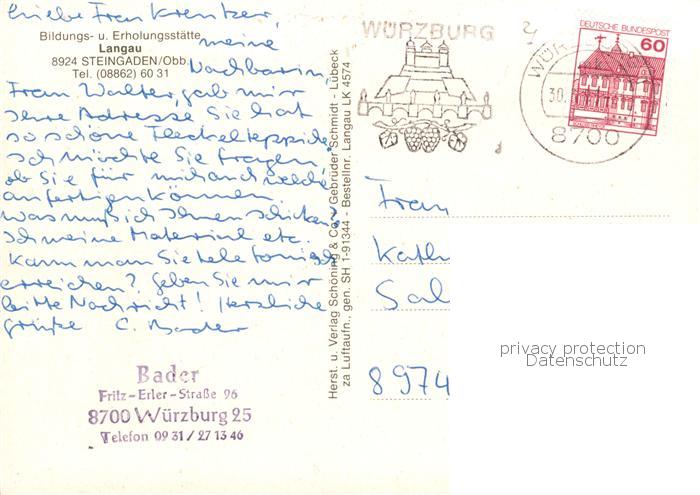 Liebe Frau Kreutzer,
Bildungs- u. Erholungsstätte
Langau
8924 STEINGADEN/Obb.
Tel. (08862) 60 31
meine
Nachbarin,
Frau Walter, gab mir
Ihre Adresse Sie hat
so schöne Fleckelteppiche
ich möchte Sie fragen,
ob Sie für mich auch welche
anfertigen können.
Was muß ich Ihnen schicken?
Ich meine Material etc.
Kann man Sie telefonisch
erreichen? Geben Sie mir
bitte Nachricht! Herzliche
Grüße C. Bader
Bader
Fritz-Erler-Straße 96
8700 Würzburg 25
Telefon 09 31 / 27 13 46
Herst. u. Verlag Schöning & Co + Gebrüder Schmidt - Lübeck
za Luftaufn., gen. SH 1-91344 - Bestellnr. Langau LK 4574
WÜRZBURG
WÜR
30.
8700
DEUTSCHE BUNDESPOST
60
Frau
Kath
Sal
8974
privacy protection
Datenschutz